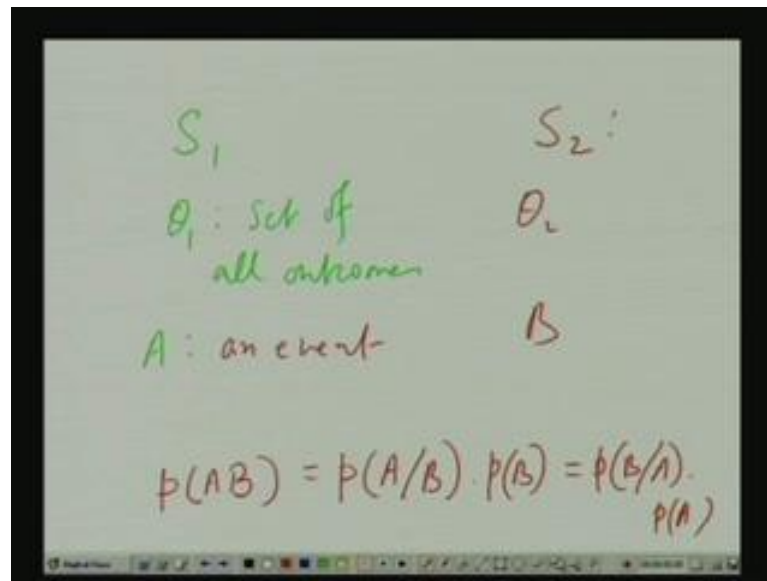 S₁ S₂ :
θ₁ : Set of θ₂
all outcomes
A : an event B
p(AB) = p(A/B) . p(B) = p(B/A) .
p(A)